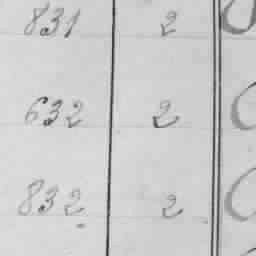 831 2
632 2
832 2